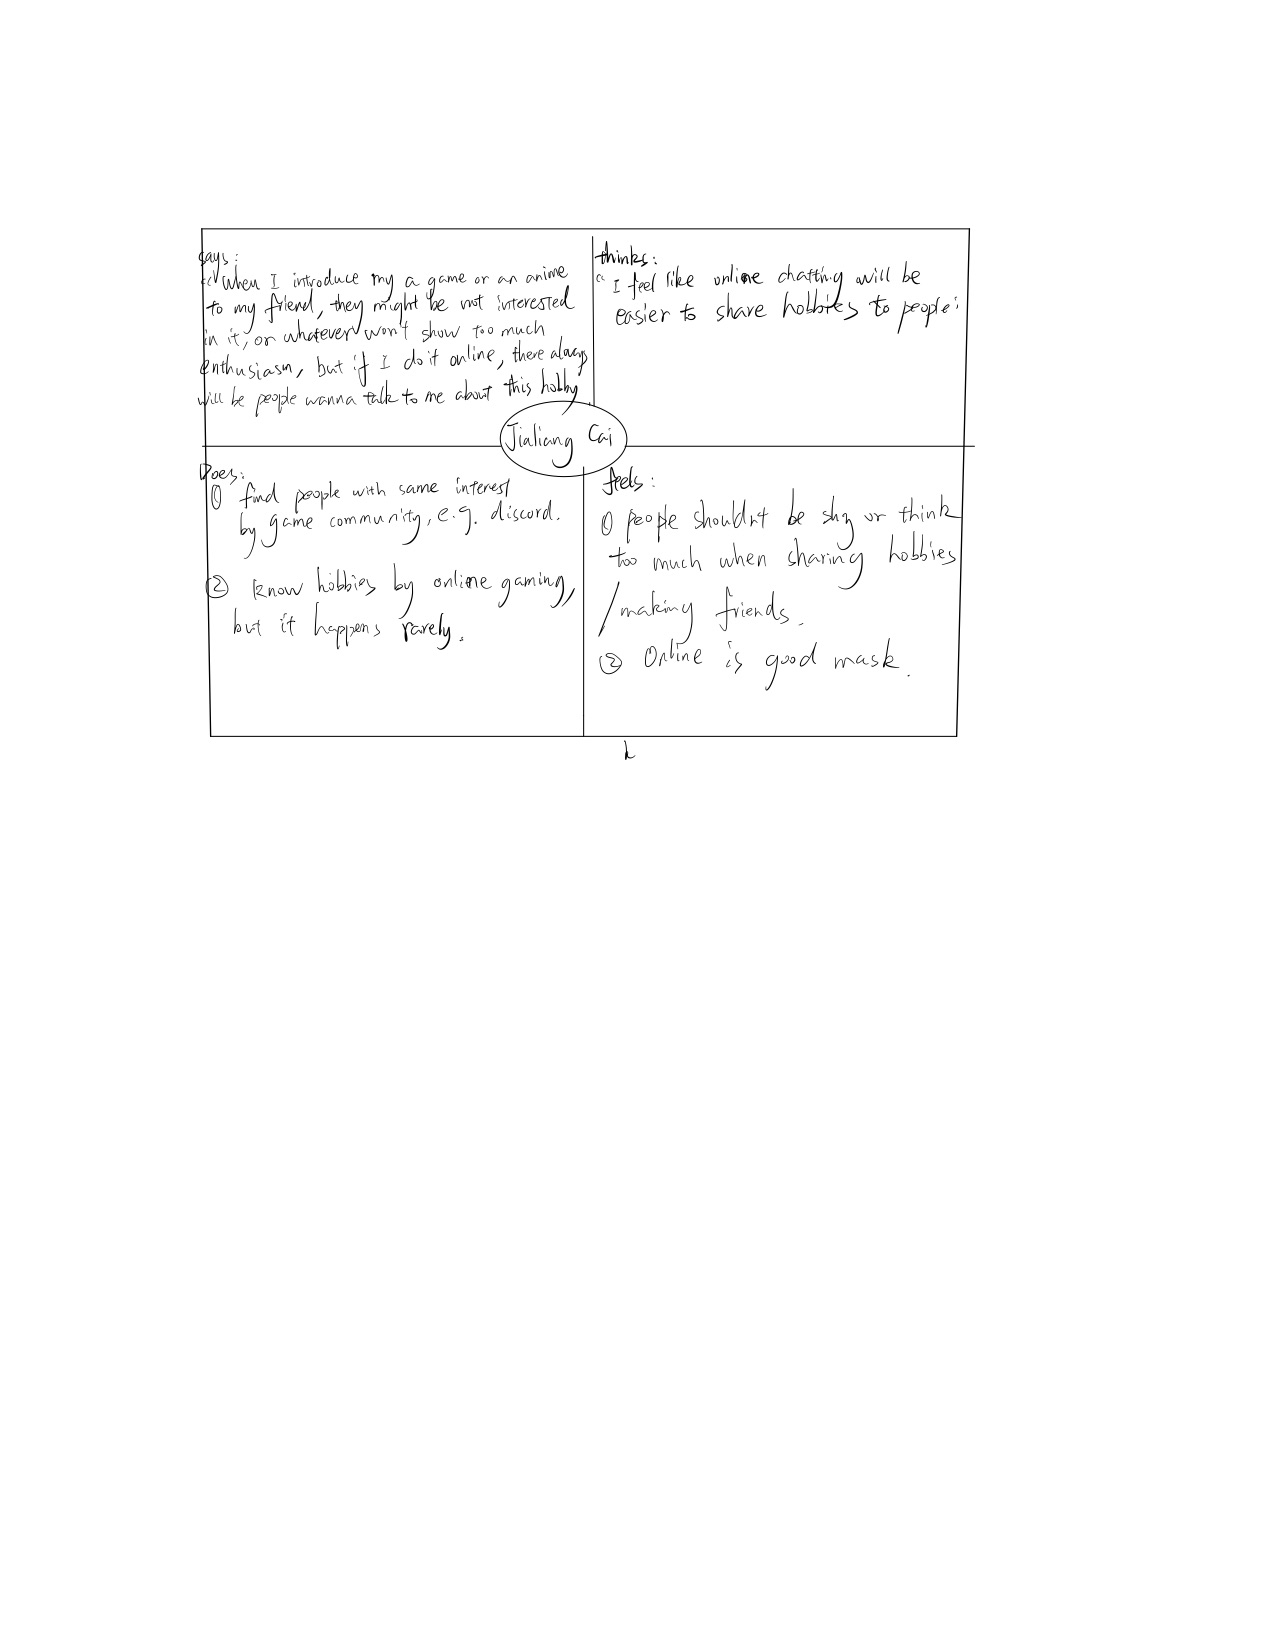 says:
"When I introduce my a game or an anime
to my friend, they might be not interested
in it, or whatever won't show too much
enthusiasm, but if I do it online, there always
will be people wanna talk to me about this hobby
thinks:
" I feel like online chatting will be
easier to share hobbies to people"
Jialiang Cai
Does:
① find people with same interest
by game community, e.g. discord.
② know hobbies by online gaming,
but it happens rarely.
feels:
① people shouldn't be shy or think
too much when sharing hobbies
/making friends.
② Online is good mask.